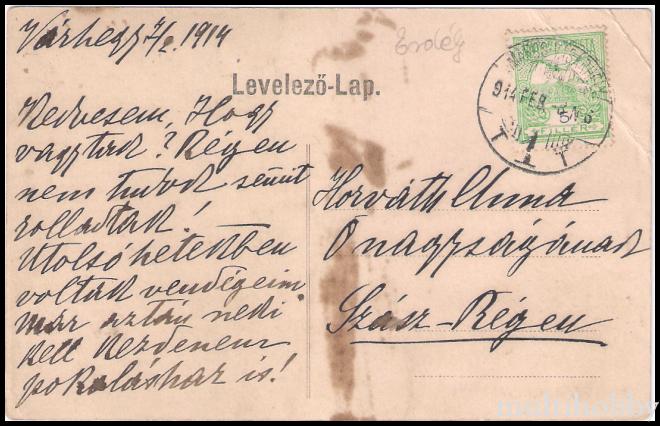 Várhegy 7/2. 1914
Erdély
Levelező-Lap.
Kedvesem, Hogy
vagytok? Régen
nem tudok semit
rollatok!
Utolsó hetekben
voltak vendégeim
már aztán neki
kell kezdenem
is!
914 FEB
FILLER
Horváth Anna
Ő nagyságának
Szász-Régen
multihobby